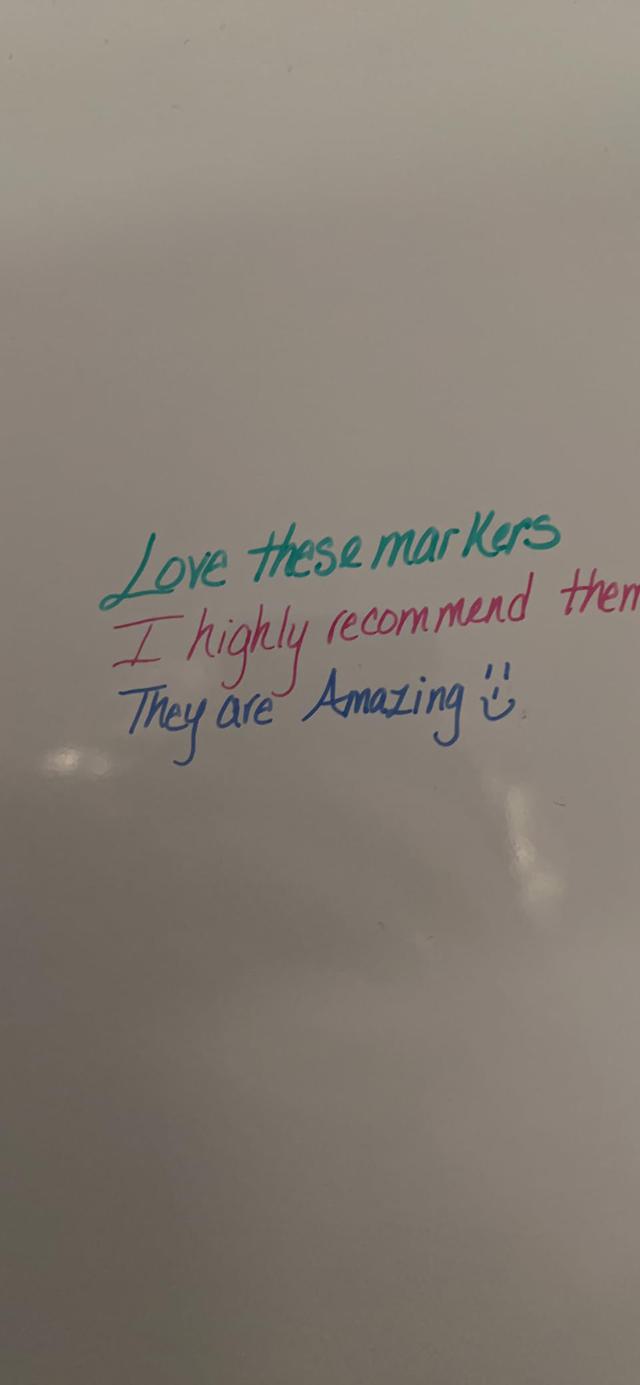 Love these markers
I highly recommend them
They are Amazing